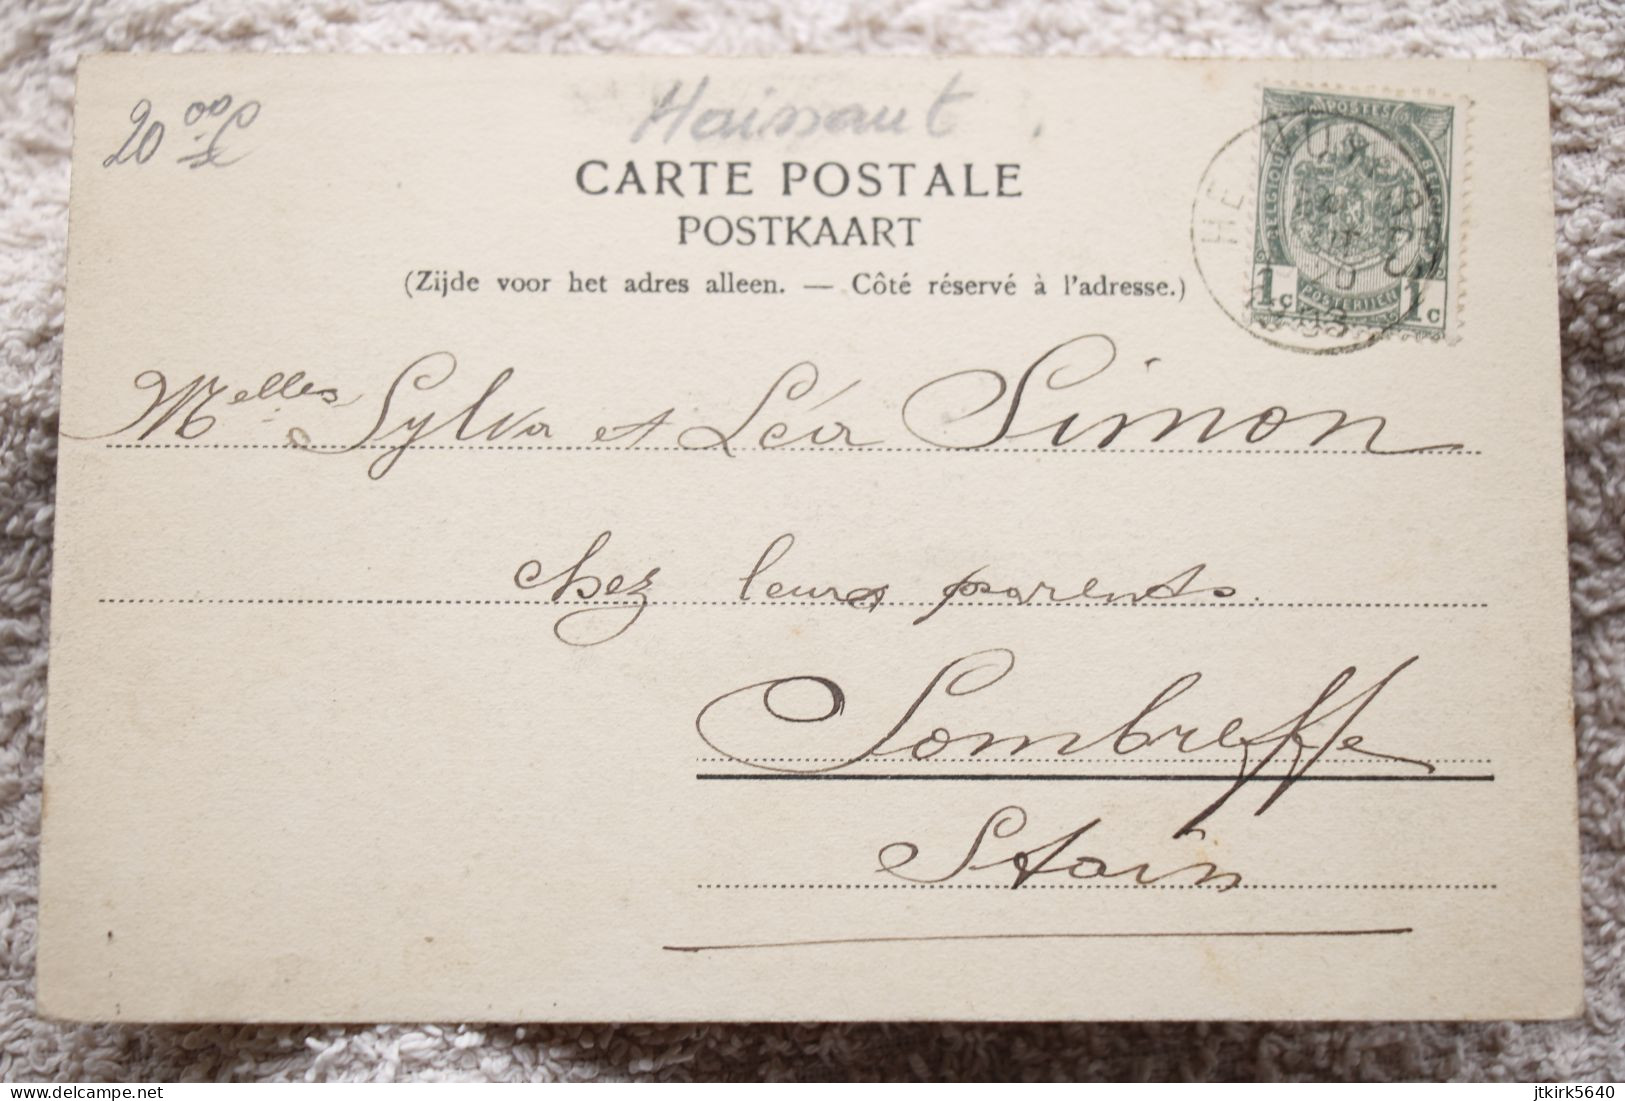 20 00
Hainaut.
CARTE POSTALE
POSTKAART
(Zijde voor het adres alleen. — Côté réservé à l'adresse.)
POSTES
BELGIQUE BELGIË
POSTERIJEN
1c 1c
Melles Sylva et Léa Simon
chez leurs parents
Sombreffe
Stain
delcampe.net
jtkirk5640